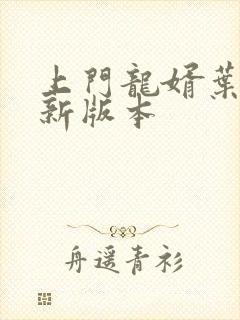 上門龍婿葉
新版本
舟遥青衫